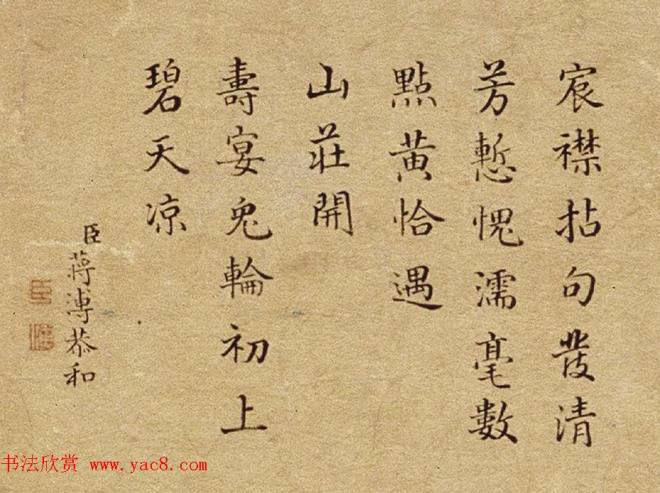 宸襟拈句發清
芳慙愧濡毫數
點黃恰遇
山莊開
壽宴兔輪初上
碧天凉
臣蔣溥恭和
臣
书法欣赏 www.yac8.com